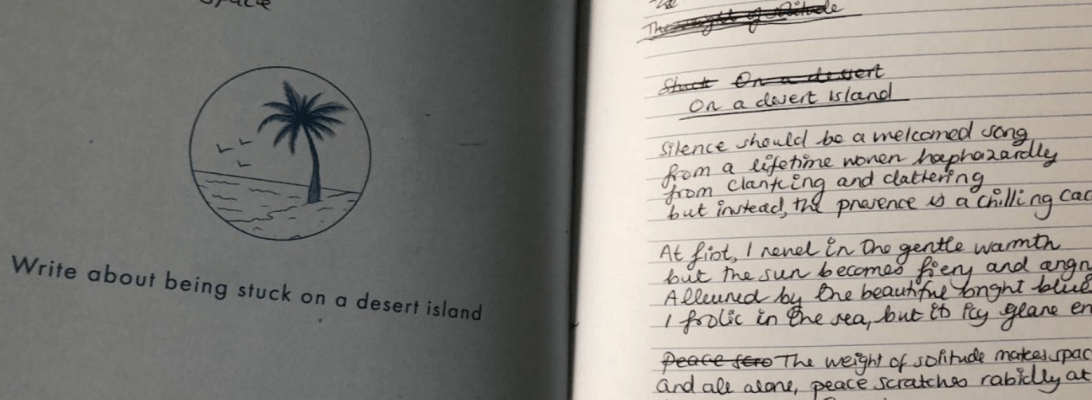 Space
Write about being stuck on a desert island
The
Thought of solitude
Stuck On a desert
On a desert island
Silence should be a welcomed song
from a lifetime woven haphazardly
from clanking and clattering
but instead, the presence is a chilling cac
At first, I revel in the gentle warmth
but the sun becomes fiery and angr
Allured by the beautiful bright blue
I frolic in the sea, but its icy glare en
Peace The weight of solitude makes spac
and all alone, peace scratches rabidly at